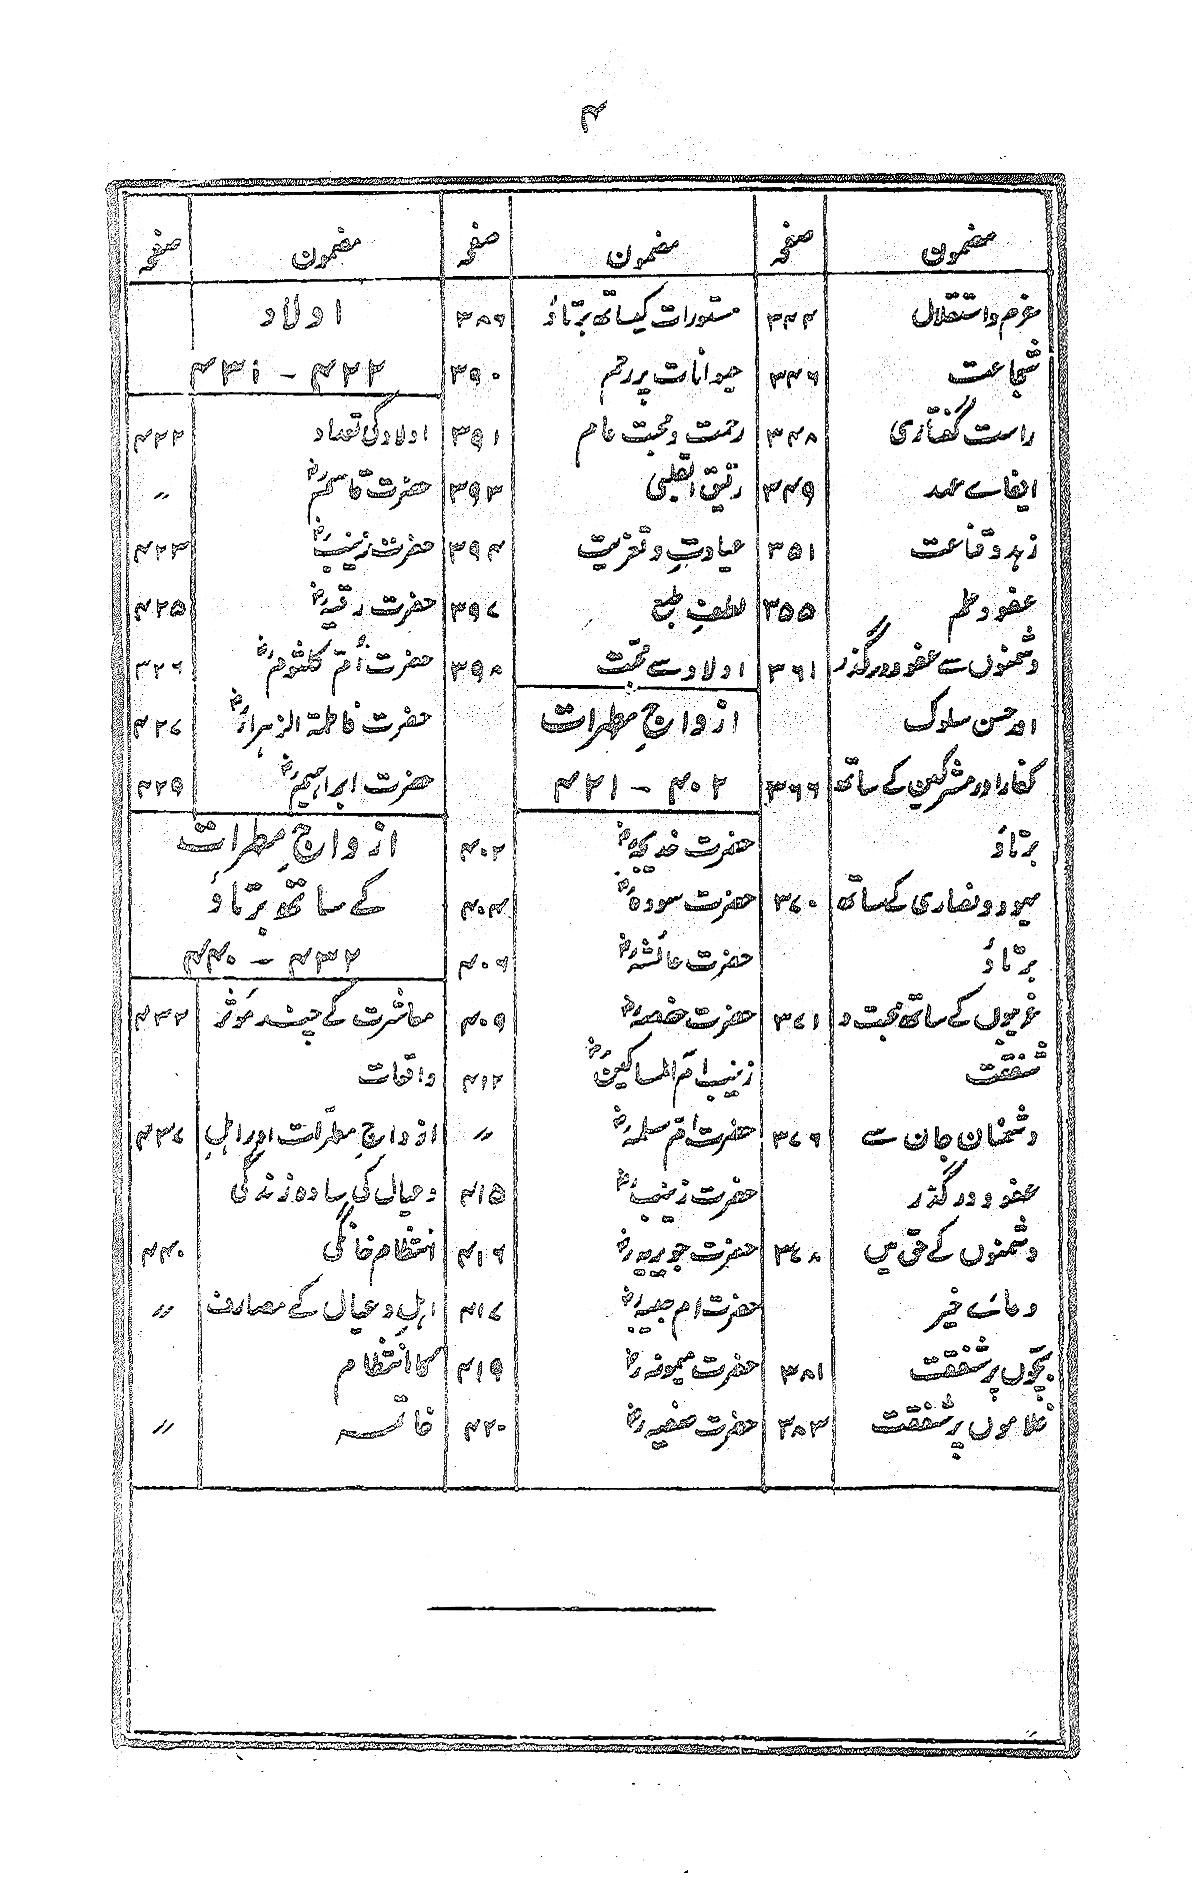 ۴
مضمون صفحہ مضمون صفحہ مضمون صفحہ
عزم و استقلال ۳۴۴
شجاعت ۳۴۶
راست گفتاری ۳۴۸
ایفاے عہد ۳۴۹
زہد و قناعت ۳۵۱
عفو و حلم ۳۵۵
دشمنوں سے عفو و درگذر ۳۶۱
اور حسن سلوک
کفار اور مشرکین کے ساتھ ۳۶۶
برتاؤ
یہود و نصاری کے ساتھ ۳۷۰
برتاؤ
غریبوں کے ساتھ محبت و ۳۷۱
شفقت
دشمنان جان سے ۳۷۶
عفو و درگذر
دشمنوں کے حق میں ۳۷۸
دعائے خیر
بچّوں پر شفقت ۳۸۱
غلاموں پر شفقت ۳۸۳
مستورات کیساتھ برتاؤ ۳۸۶
حیوانات پر رحم ۳۹۰
رحمت و محبت عام ۳۹۱
رقیق القلبی ۳۹۳
عیادت و تعزیت ۳۹۴
لطفِ طبع ۳۹۷
اولاد سے محبّت ۳۹۸
ازواجِ مطہرات
۴۰۲ - ۴۲۱
حضرت خدیجہؓ ۴۰۲
حضرت سودہؓ ۴۰۴
حضرت عائشہؓ ۴۰۶
حضرت حفصہؓ ۴۰۹
زینب امّ المساکینؓ ۴۱۲
حضرت امّ سلمہؓ 〃
حضرت زینبؓ ۴۱۵
حضرت جویریہؓ ۴۱۶
حضرت ام حبیبہؓ ۴۱۷
حضرت میمونہؓ ۴۱۹
حضرت صفیہؓ ۴۲۰
اولاد
۴۲۲ - ۴۳۱
اولاد کی تعداد ۴۲۲
حضرت قاسمؓ 〃
حضرت زینبؓ ۴۲۳
حضرت رقیہؓ ۴۲۵
حضرت اُمّ کلثومؓ ۴۲۶
حضرت فاطمۃ الزہراءؓ ۴۲۷
حضرت ابراہیمؓ ۴۲۹
ازواجِ مطہراتِ
کے ساتھ برتاؤ
۴۳۲ - ۴۴۰
معاشرت کے چند مؤثر ۴۳۲
واقعات
ازواجِ مطہّرات اور اہل ۴۳۷
و عیال کی سادہ زندگی
انتظام خانگی ۴۴۰
اہل و عیال کے مصارف 〃
کا انتظام
خاتمہ 〃